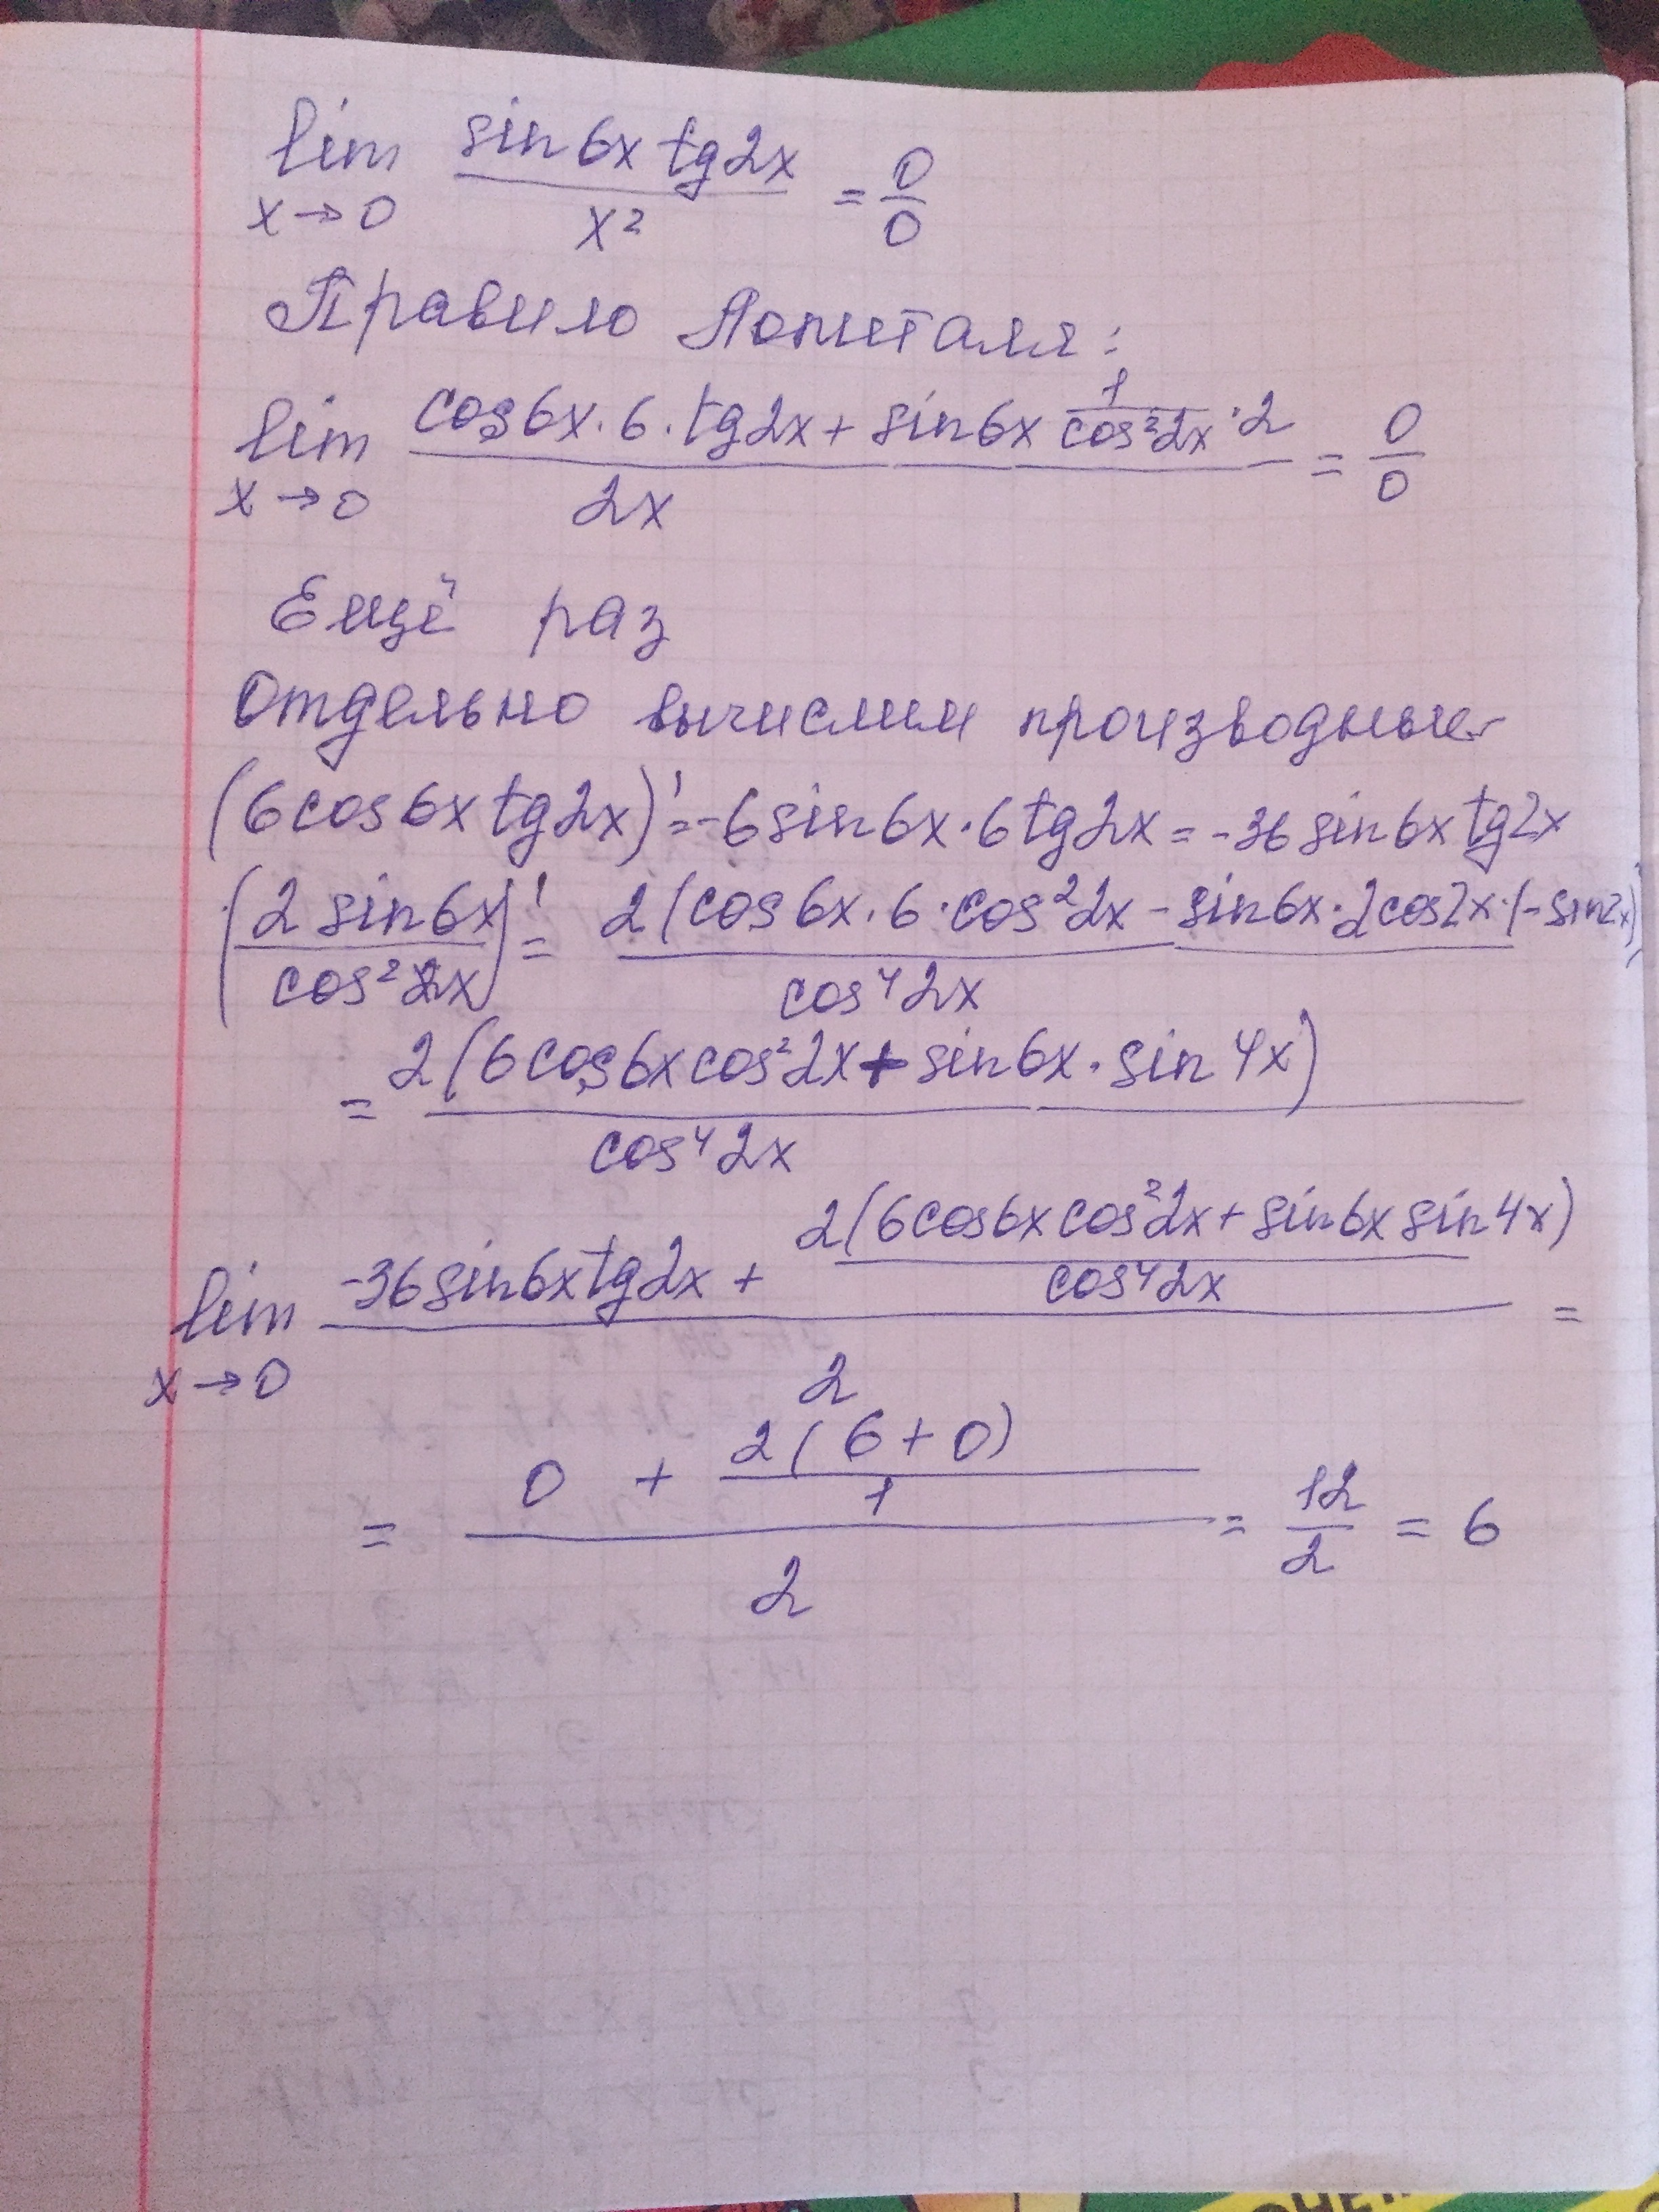 lim sin6x tg2x / x² = 0/0
x→0
Правило Лопиталя:
lim (cos6x·6·tg2x + sin6x 1/cos²2x ·2) / 2x = 0/0
x→0
Ещё раз
Отдельно вычислим производные
(6cos6x tg2x)' = -6sin6x·6tg2x = -36sin6x tg2x
(2sin6x / cos²2x)' = 2(cos6x·6·cos²2x - sin6x·2cos2x·(-sin2x)) / cos⁴2x
= 2(6cos6xcos²2x + sin6x·sin4x) / cos⁴2x
lim (-36sin6xtg2x + 2(6cos6xcos²2x + sin6x sin4x) / cos⁴2x) / 2 =
x→0
= (0 + 2(6+0) / 1) / 2 = 12/2 = 6